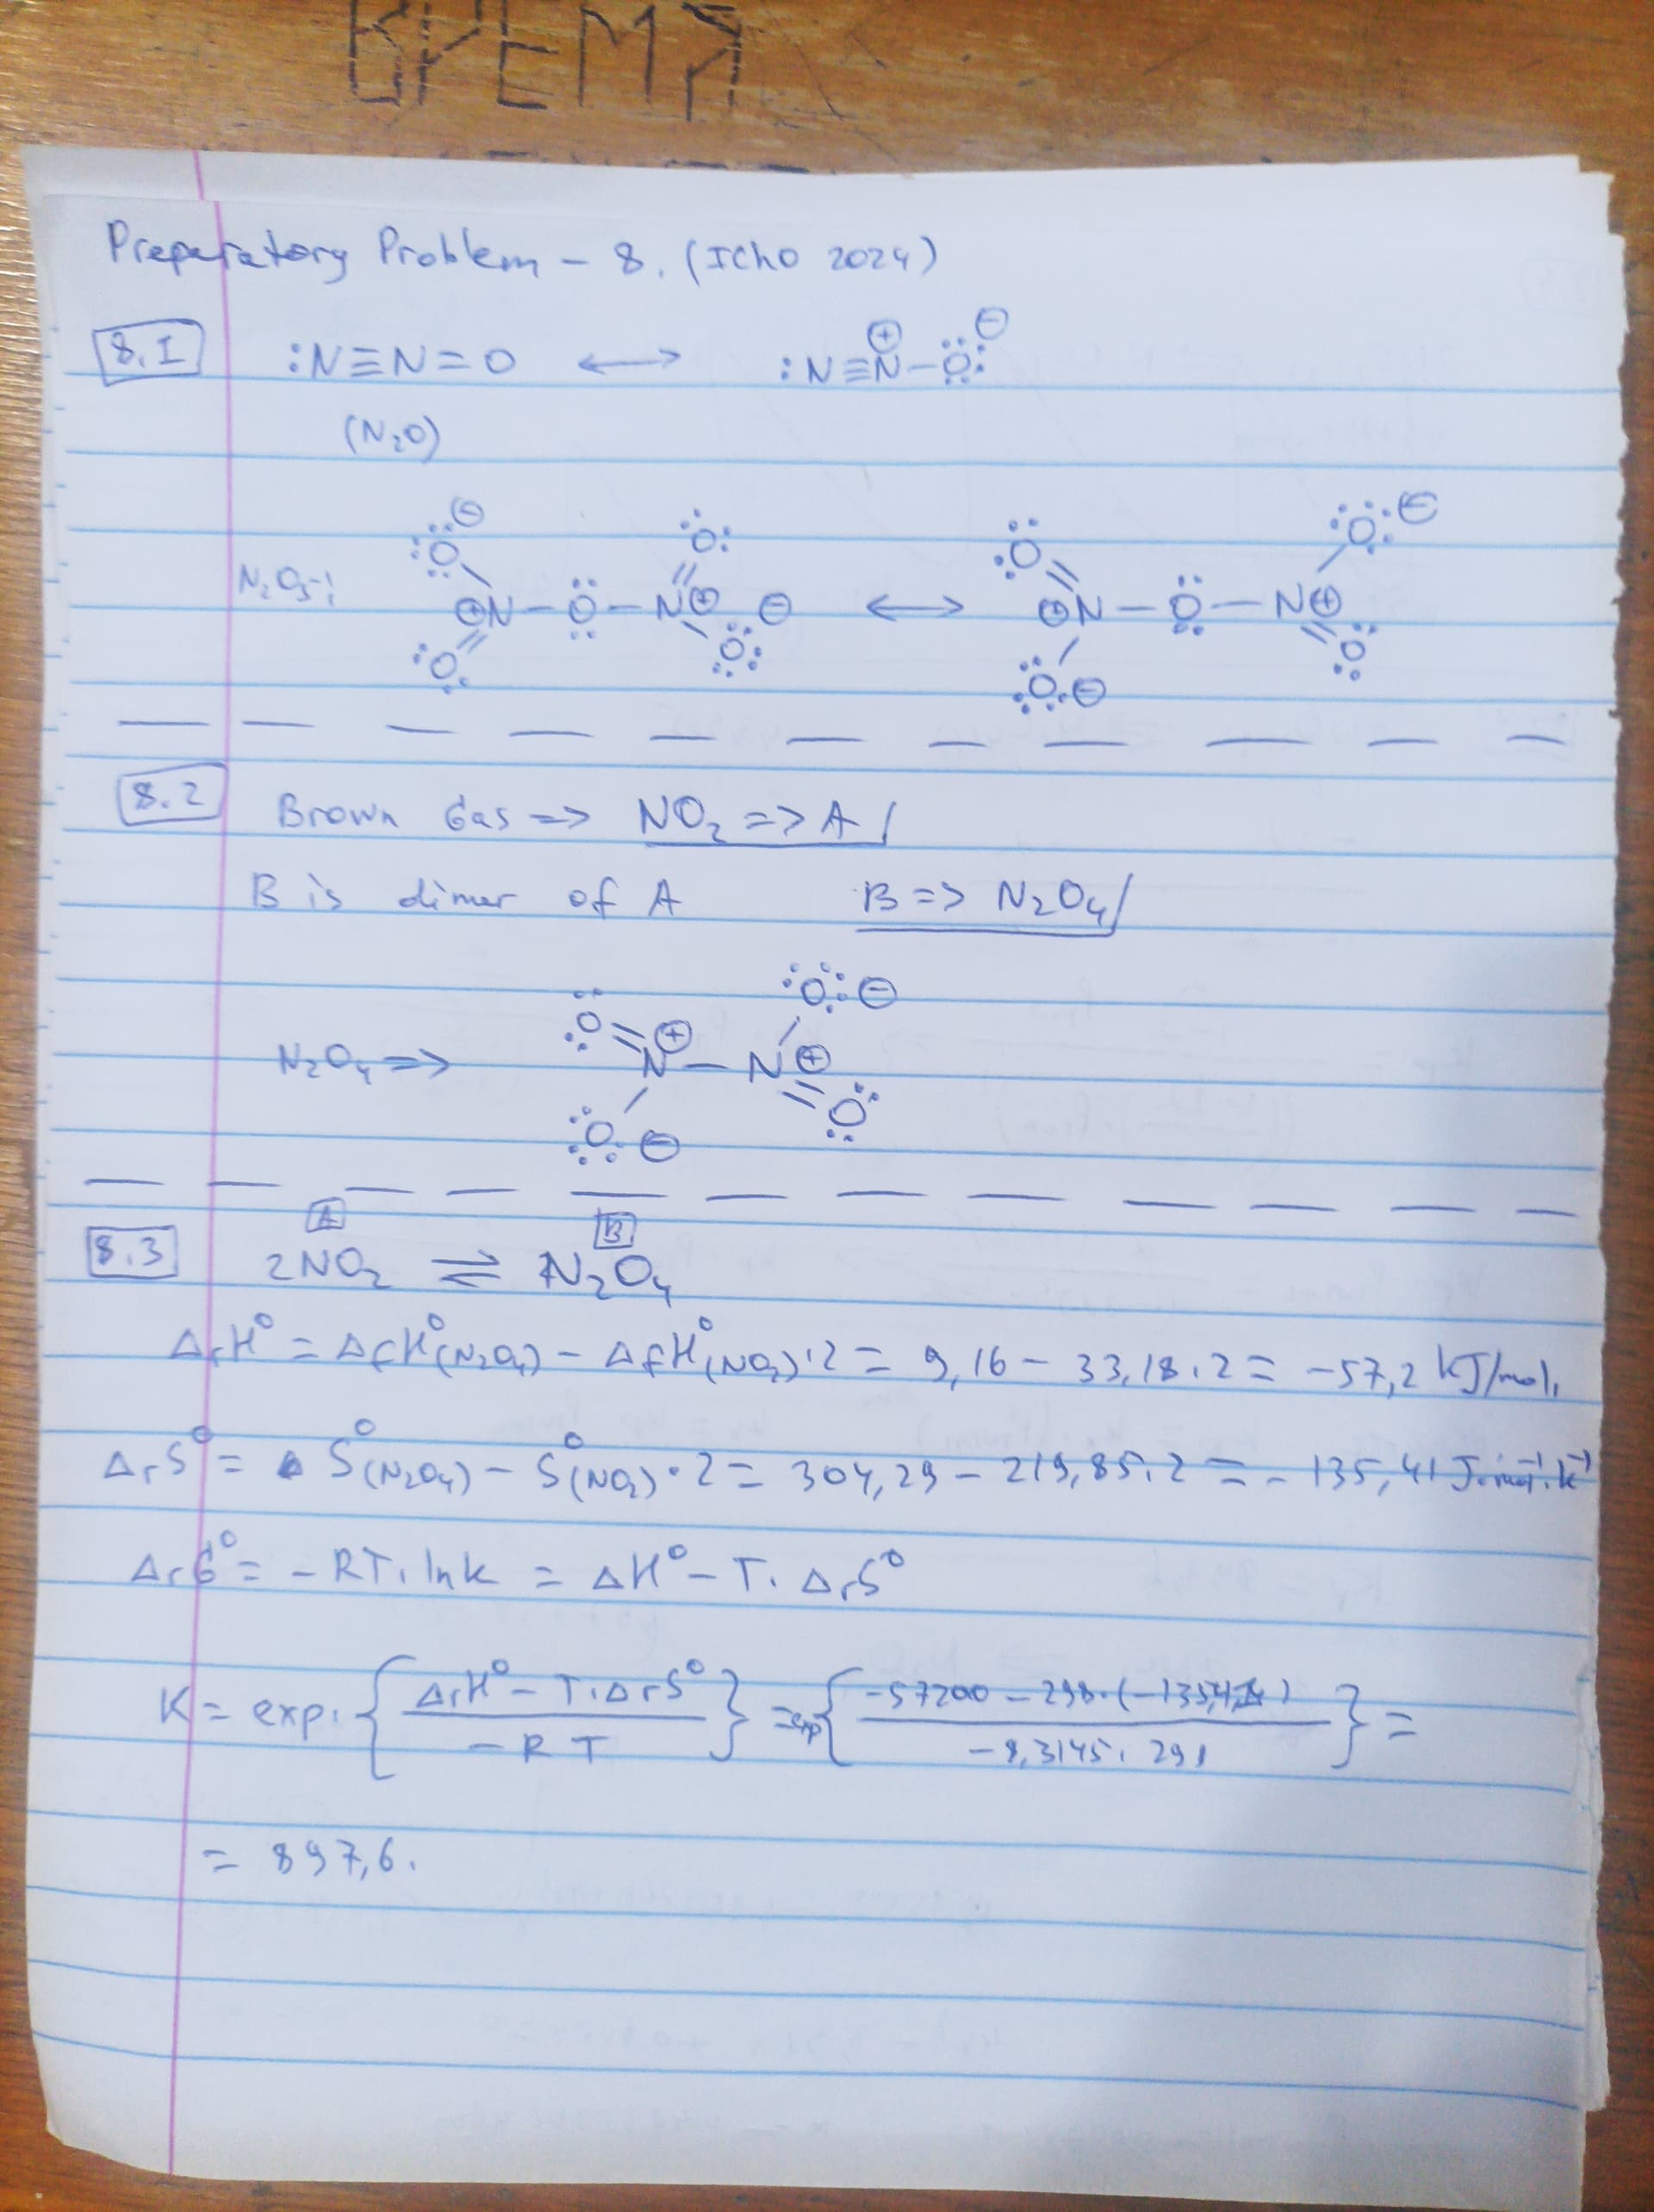 ВРЕМЯ
Preparatory Problem - 8. (IChO 2024)
8.1 :N≡N=O ⟷ :N≡N⊕-O⊖
(N₂O)
N₂O₅:
O⊖ O O O⊖
⊕N-O-N⊕ ⊖ ⟷ ⊕N-O-N⊕
O O O⊖ O
8.2 Brown Gas => NO₂ => A
B is dimer of A B => N₂O₄
O⊖
N₂O₄ => O=N⊕-N⊕
O⊖ O
A B
8.3 2NO₂ ⇌ N₂O₄
ΔrH° = ΔfH°(N₂O₄) - ΔfH°(NO₂)·2 = 9,16 - 33,18·2 = -57,2 kJ/mol.
ΔrS° = S°(N₂O₄) - S°(NO₂)·2 = 304,29 - 219,85·2 = -135,41 J·mol⁻¹·k⁻¹
ΔrG° = -RT·lnk = ΔH° - T·ΔrS°
K = exp·{(ΔrH° - T·ΔrS°)/(-RT)} = exp{(-57200 - 298·(-135,41))/(-8,3145·298)} =
= 897,6.